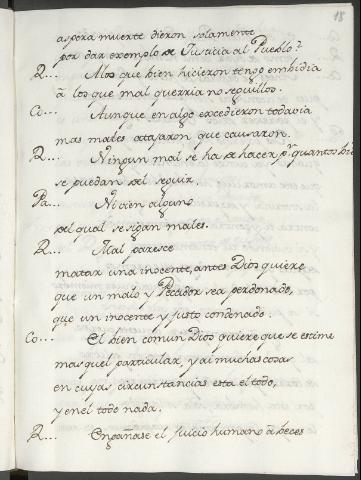 18
aspera muerte dieron solamente
por dar exemplo de Justicia al Pueblo?
R... Alos que bien hicieron tengo embidia
â los que mal querria no seguillos.
Co... Aunque en algo excedieron todavia
mas males atajaron que causaron.
R... Ningun mal se ha de hacer pr quantos bie
se puedan del seguir
Pa... Ni vien alguno
del qual se sigan males.
R... Mal paresce
matar una inocente, antes Dios quiere
que un malo y Pecador sea perdonado,
que un inocente y justo condenado.
Co... El bien comun Dios quiere que se estime
mas quel particular, y ai muchas cosas
en cuyas circunstancias esta el todo,
y en el todo nada.
R... Engañase el juicio humano â beces